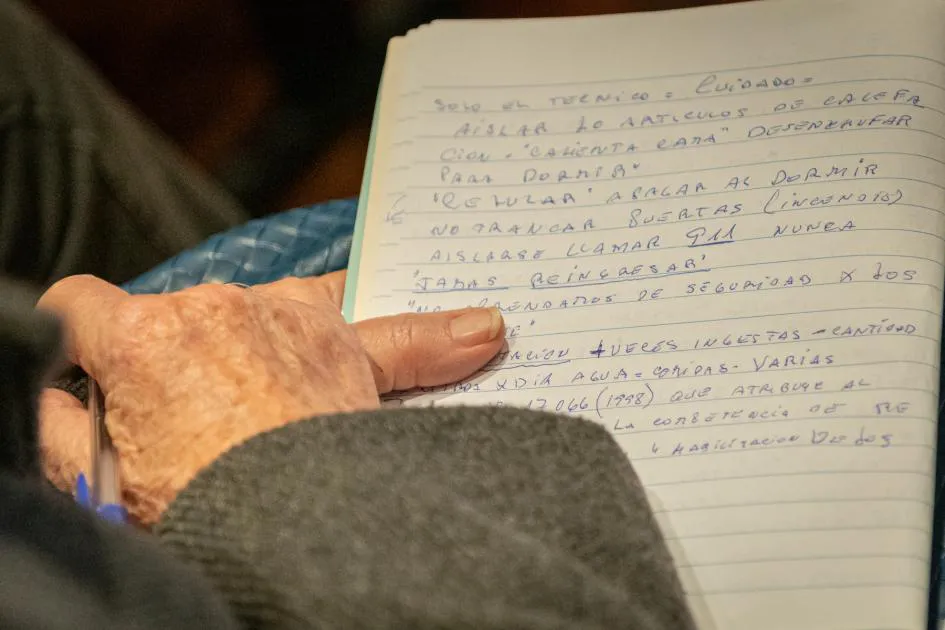 SOLO EL TECNICO = CUIDADO =
AISLAR LO ARTICULOS DE CALEFA
CION - "CALIENTA CAMA" DESENCHUFAR
PARA DORMIR"
"REGULAR" APAGAR AL DORMIR
NO TRANCAR PUERTAS (INCENDIO)
AISLARSE LLAMAR 911 NUNCA
"JAMAS REINGRESAR"
DE SEGURIDAD X LOS
TE"
TACION 4 VECES INGESTAS - CANTIDAD
X DIA AGUA = COMIDAS - VARIAS
17.066 (1998) QUE ATRIBUYE AL
LA COMPETENCIA DE RE
HABILITACION DE LOS